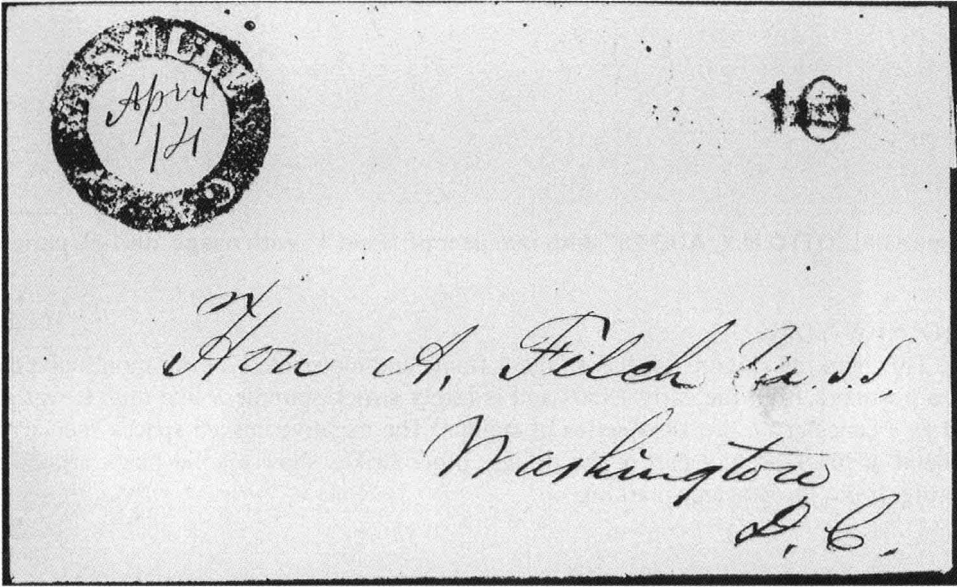 April
14
10
Hon A. Felch U.S.S.
Washington
D. C.